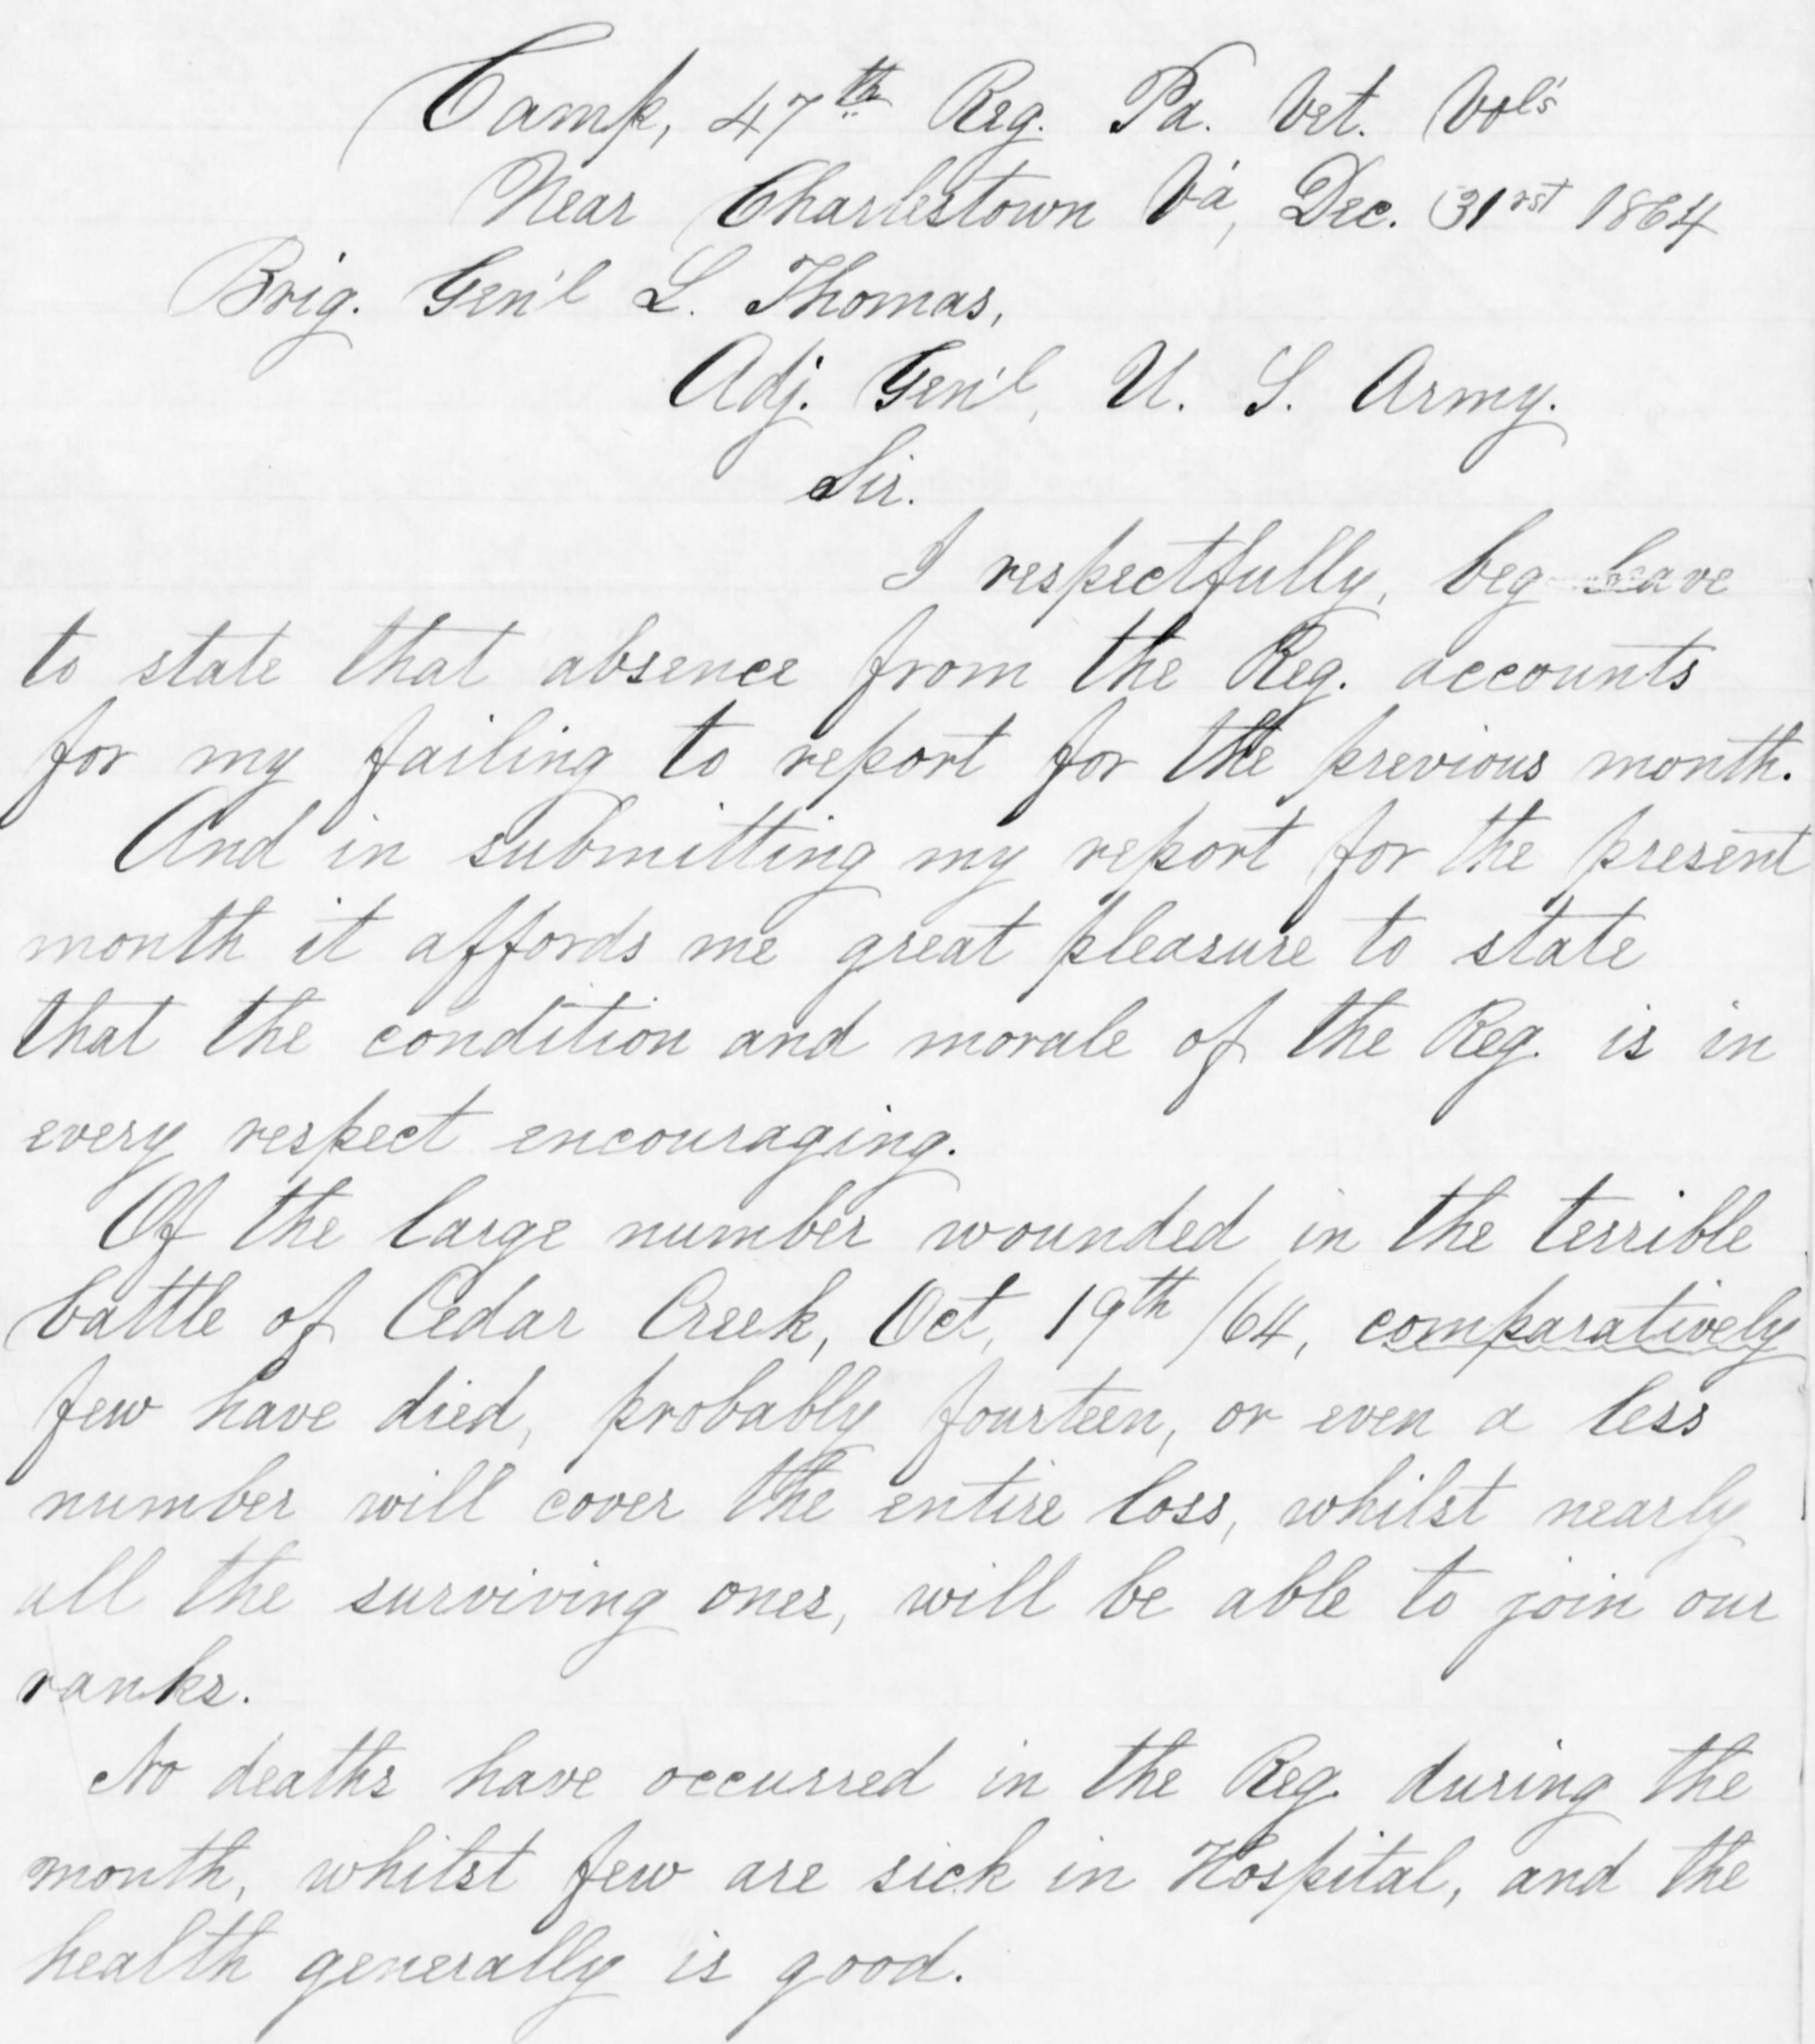 Camp, 47th Reg. Pa. Vet. Vol's
Near Charlestown Va, Dec. 31rst 1864
Brig. Gen'l L. Thomas,
Adj. Gen'l, U. S. Army.
Sir.
I respectfully, beg leave
to state that absence from the Reg. accounts
for my failing to report for the previous month.
And in submitting my report for the present
month it affords me great pleasure to state
that the condition and morale of the Reg. is in
every respect encouraging.
Of the large number wounded in the terrible
battle of Cedar Creek, Oct, 19th /64, comparatively
few have died, probably fourteen, or even a less
number will cover the entire loss, whilst nearly
all the surviving ones, will be able to join our
ranks.
No deaths have occurred in the Reg. during the
month, whilst few are sick in Hospital, and the
health generally is good.